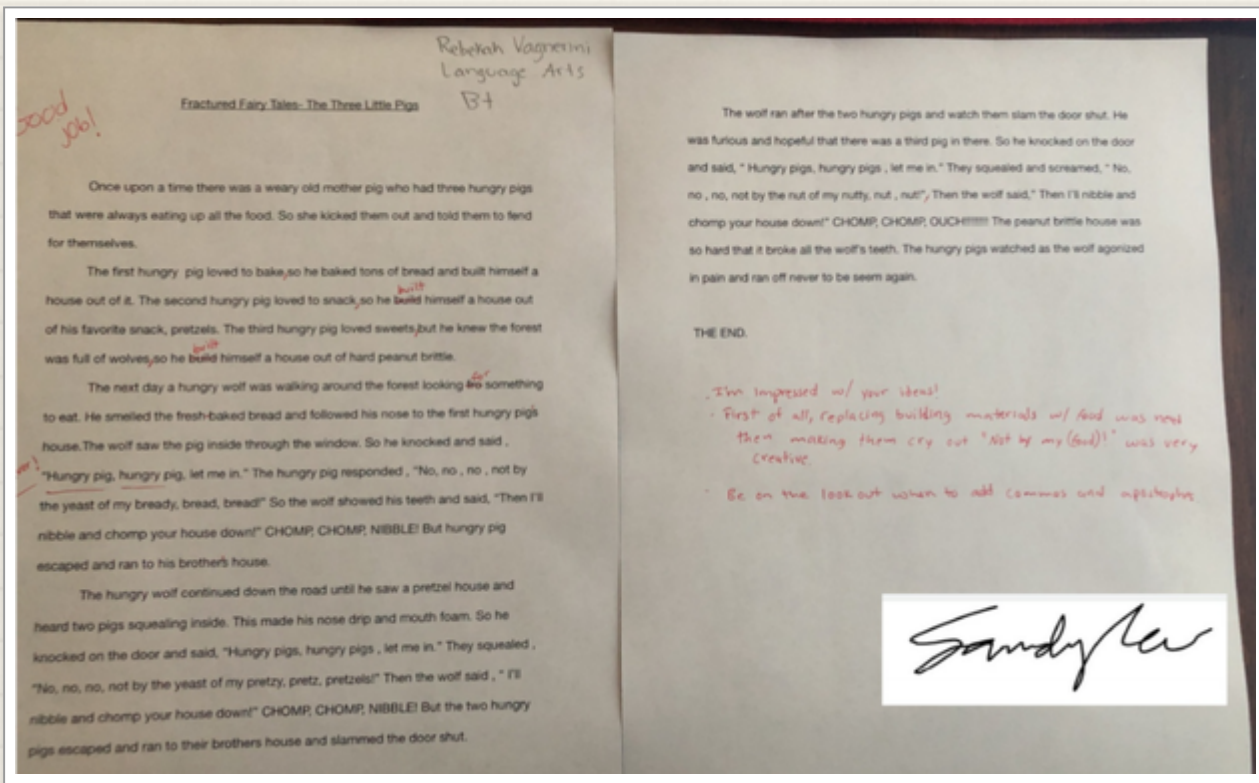 Rebekah Vagnerini
Language Arts
B+
Good
job!
Fractured Fairy Tales- The Three Little Pigs
Once upon a time there was a weary old mother pig who had three hungry pigs
that were always eating up all the food. So she kicked them out and told them to fend
for themselves.
The first hungry pig loved to bake, so he baked tons of bread and built himself a
built
house out of it. The second hungry pig loved to snack, so he build himself a house out
of his favorite snack, pretzels. The third hungry pig loved sweets, but he knew the forest
built
was full of wolves, so he build himself a house out of hard peanut brittle.
for
The next day a hungry wolf was walking around the forest looking fro something
to eat. He smelled the fresh-baked bread and followed his nose to the first hungry pig's
house.The wolf saw the pig inside through the window. So he knocked and said ,
"Hungry pig, hungry pig, let me in." The hungry pig responded , "No, no , no , not by
the yeast of my bready, bread, bread!" So the wolf showed his teeth and said, "Then I'll
nibble and chomp your house down!" CHOMP, CHOMP, NIBBLE! But hungry pig
escaped and ran to his brother's house.
The hungry wolf continued down the road until he saw a pretzel house and
heard two pigs squealing inside. This made his nose drip and mouth foam. So he
knocked on the door and said, "Hungry pigs, hungry pigs , let me in." They squealed ,
"No, no, no, not by the yeast of my pretzy, pretz, pretzels!" Then the wolf said , " I'll
nibble and chomp your house down!" CHOMP, CHOMP, NIBBLE! But the two hungry
pigs escaped and ran to their brothers house and slammed the door shut.
The wolf ran after the two hungry pigs and watch them slam the door shut. He
was furious and hopeful that there was a third pig in there. So he knocked on the door
and said, " Hungry pigs, hungry pigs , let me in." They squealed and screamed, " No,
no , no, not by the nut of my nutty, nut , nut!", Then the wolf said," Then I'll nibble and
chomp your house down!" CHOMP, CHOMP, OUCH!!!!!!!! The peanut brittle house was
so hard that it broke all the wolf's teeth. The hungry pigs watched as the wolf agonized
in pain and ran off never to be seem again.
THE END.
. I'm impressed w/ your ideas!
· First of all, replacing building materials w/ food was neat
then making them cry out "Not by my (food)!" was very
creative.
· Be on the look out when to add commas and apostrophe